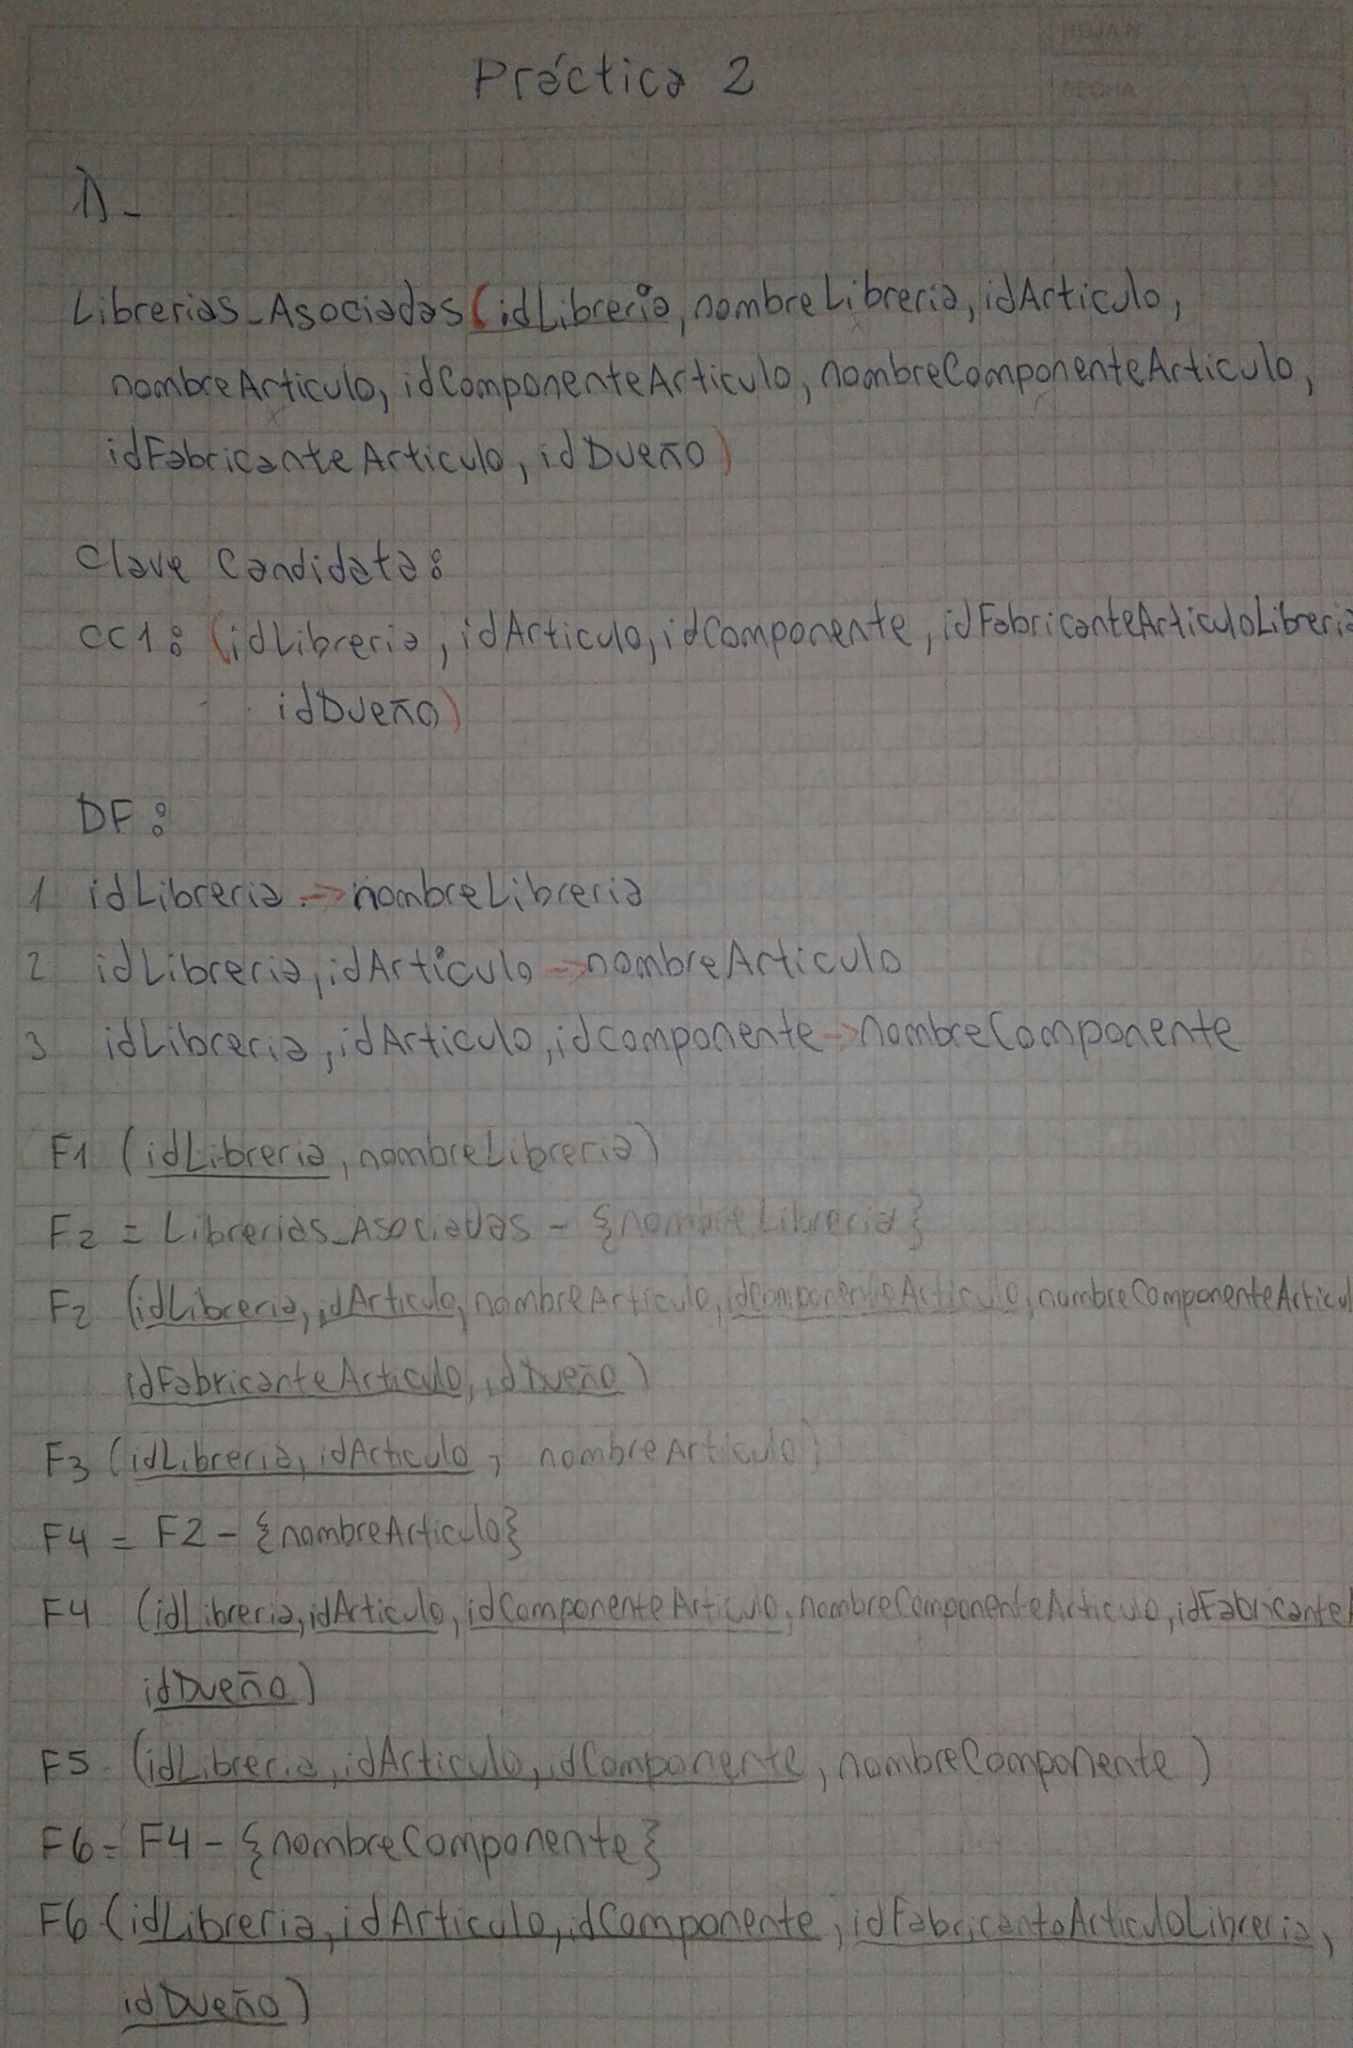 HOJA Nº
FECHA
Práctica 2
1)-
Librerias_Asociadas (idLibreria, nombreLibreria, idArticulo,
nombreArticulo, idComponenteArticulo, nombreComponenteArticulo,
idFabricanteArticulo, idDueño)
Clave Candidata:
CC1: (idLibreria, idArticulo, idComponente, idFabricanteArticuloLibreria
idDueño)
DF:
1 idLibreria -> nombreLibreria
2 idLibreria, idArticulo -> nombreArticulo
3 idLibreria, idArticulo, idcomponente -> nombreComponente
F1 (idLibreria, nombreLibreria)
F2 = Librerias_Asociadas - {nombreLibreria}
F2 (idLibreria, idArticulo, nombreArticulo, idComponenteArticulo, nombreComponenteArticul
idFabricanteArticulo, idDueño)
F3 (idLibreria, idArticulo, nombreArticulo)
F4 = F2 - {nombreArticulo}
F4 (idLibreria, idArticulo, idComponenteArticulo, nombreComponenteArticulo, idFabricanteA
idDueño)
F5 (idLibreria, idArticulo, idComponente, nombreComponente)
F6 = F4 - {nombreComponente}
F6 (idLibreria, idArticulo, idComponente, idFabricanteArticuloLibreria,
idDueño)